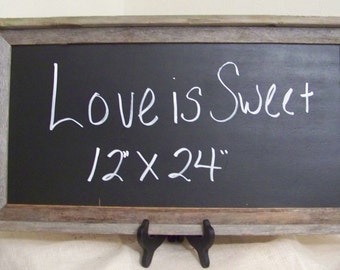 Love is Sweet
12" X 24"